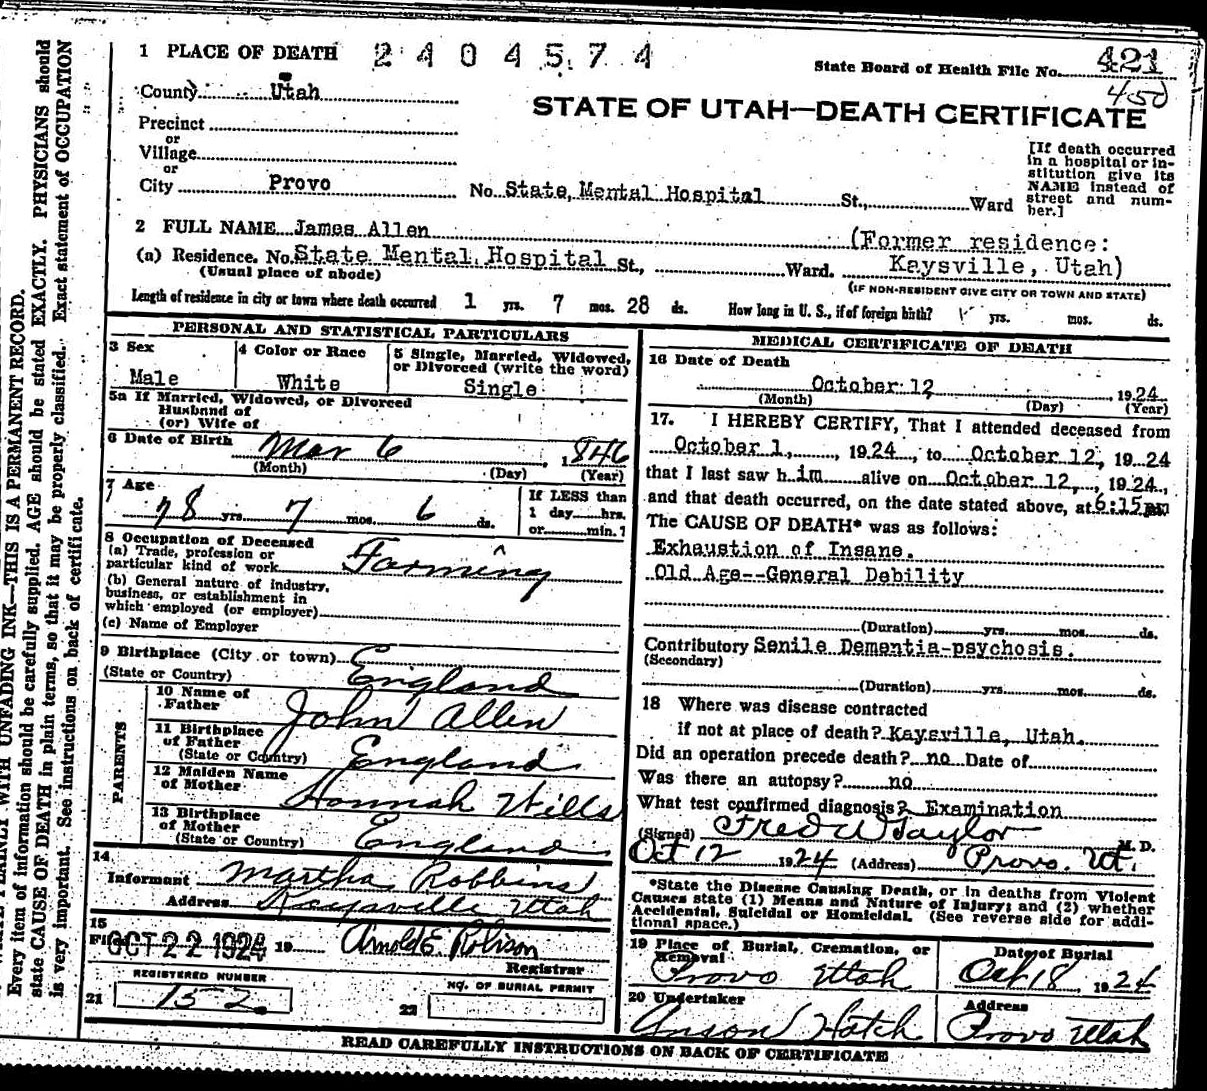 1 PLACE OF DEATH 2404574
State Board of Health File No. 421
450
County Utah
STATE OF UTAH—DEATH CERTIFICATE
Precinct
or
Village
or
City Provo No. State Mental Hospital St., Ward
[If death occurred
in a hospital or in-
stitution give its
NAME instead of
street and num-
ber.]
2 FULL NAME James Allen
(Former residence:
(a) Residence. No. State Mental Hospital St., Ward. Kaysville, Utah)
(Usual place of abode)
(IF NON-RESIDENT GIVE CITY OR TOWN AND STATE)
Length of residence in city or town where death occurred 1 yrs. 7 mos. 28 ds. How long in U. S., if of foreign birth? yrs. mos. ds.
PERSONAL AND STATISTICAL PARTICULARS
3 Sex
Male
4 Color or Race
White
5 Single, Married, Widowed,
or Divorced (write the word)
Single
5a If Married, Widowed, or Divorced
Husband of
(or) Wife of
6 Date of Birth Mar 6, 1846
(Month) (Day) (Year)
7 Age
78 yrs 7 mos. 6 ds.
If LESS than
1 day hrs.
or min.?
8 Occupation of Deceased
(a) Trade, profession or
particular kind of work Farming
(b) General nature of industry,
business, or establishment in
which employed (or employer)
(c) Name of Employer
9 Birthplace (City or town)
(State or Country) England
PARENTS
10 Name of
Father John Allen
11 Birthplace
of Father
(State or Country) England
12 Maiden Name
of Mother Hannah Wills
13 Birthplace
of Mother
(State or Country) England
14
Informant Martha Robbins
Address Kaysville Utah
15
Filed OCT 22 1924 19 Arnold E. Robison
Registrar
REGISTERED NUMBER
21 152
NO. OF BURIAL PERMIT
22
MEDICAL CERTIFICATE OF DEATH
16 Date of Death
October 12, 1924
(Month) (Day) (Year)
17. I HEREBY CERTIFY, That I attended deceased from
October 1, 1924, to October 12, 1924
that I last saw him alive on October 12, 1924,
and that death occurred, on the date stated above, at 6:15 pm
The CAUSE OF DEATH* was as follows:
Exhaustion of Insane.
Old Age--General Debility
(Duration) yrs. mos. ds.
Contributory Senile Dementia-psychosis.
(Secondary)
(Duration) yrs. mos. ds.
18 Where was disease contracted
if not at place of death? Kaysville, Utah.
Did an operation precede death? no Date of
Was there an autopsy? no
What test confirmed diagnosis? Examination
(Signed) Fred W Taylor M. D.
Oct 12 1924 (Address) Provo. Ut.
*State the Disease Causing Death, or in deaths from Violent
Causes state (1) Means and Nature of Injury; and (2) whether
Accidental, Suicidal or Homicidal. (See reverse side for addi-
tional space.)
19 Place of Burial, Cremation, or
Removal
Provo Utah
Date of Burial
Oct 18, 1924
20 Undertaker
Anson Hatch
Address
Provo Utah
READ CAREFULLY INSTRUCTIONS ON BACK OF CERTIFICATE
PLAINLY WITH UNFADING INK—THIS IS A PERMANENT RECORD.
Every item of information should be carefully supplied. AGE should be stated EXACTLY. PHYSICIANS should
state CAUSE OF DEATH in plain terms, so that it may be properly classified. Exact statement of OCCUPATION
is very important. See instructions on back of certificate.